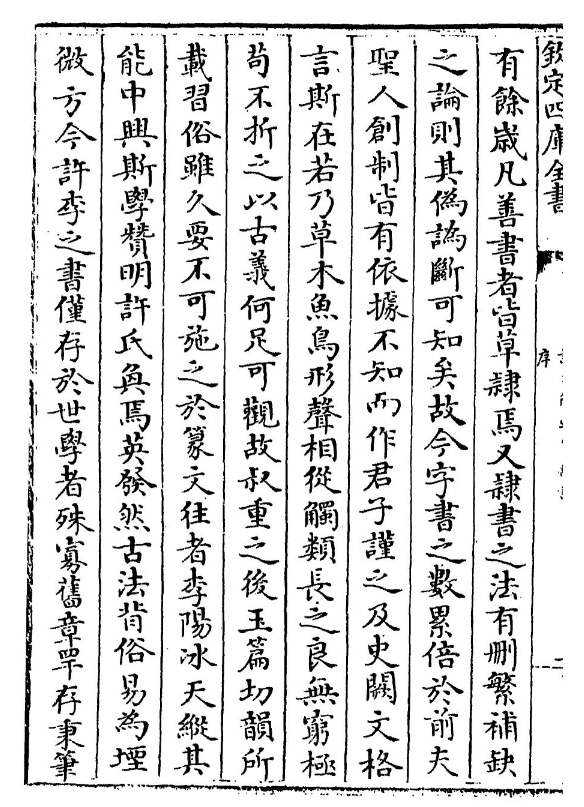 欽定四庫全書
序
二
有餘歲凡善書者皆草𨽻焉又𨽻書之法有刪繁補缺
之論則其偽譌斷可知矣故今字書之數累倍於前夫
聖人創制皆有依據不知而作君子謹之及史闕文格
言斯在若乃草木魚鳥形聲相從觸類長之良無窮極
苟不折之以古義何足可觀故叔重之後玉篇切韻所
載習俗雖久要不可施之於篆文往者李陽冰天縱其
能中興斯學贊明許氏奐焉英發然古法背俗易為堙
微方今許李之書僅存於世學者殊寡舊章罕存秉筆